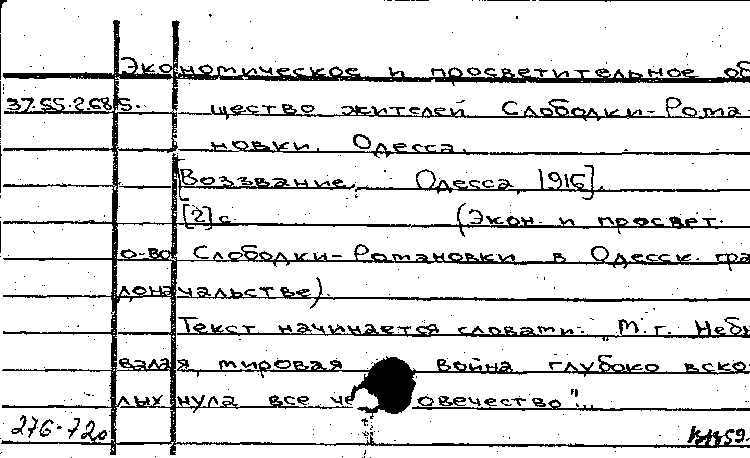 Экономическое и просветительное об
37.55.268 5. щество жителей Слободки-Рома
новки. Одесса.
[Воззвание. Одесса, 1916].
[2] с. (Экон. и просвет.
о-во Слободки-Романовки в Одесск. гра
доначальстве).
Текст начинается словами: "М. г. Небы
валая, мировая война глубоко вско
лыхнула все че овечество"...
276-72